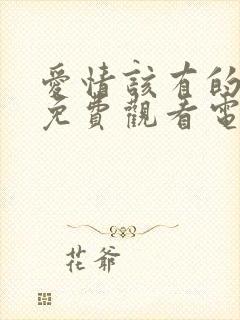 愛情該有的
免費觀看電
花爺